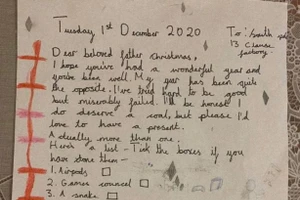 Tuesday, 1st December 2020
To: South
13
factory.
Dear beloved father christmas,
I hope you've had a wonderful year and
you've been well. My year has been quite
the opposite. I've tried hard to be good
but miserably failed. I'll be honest I
do deserve a coal, but please I'd
love to have a present.
Actually more than one.
Here's a list - Tick the boxes if you
have done them -
1. Airpods
2. Games
3. A snake